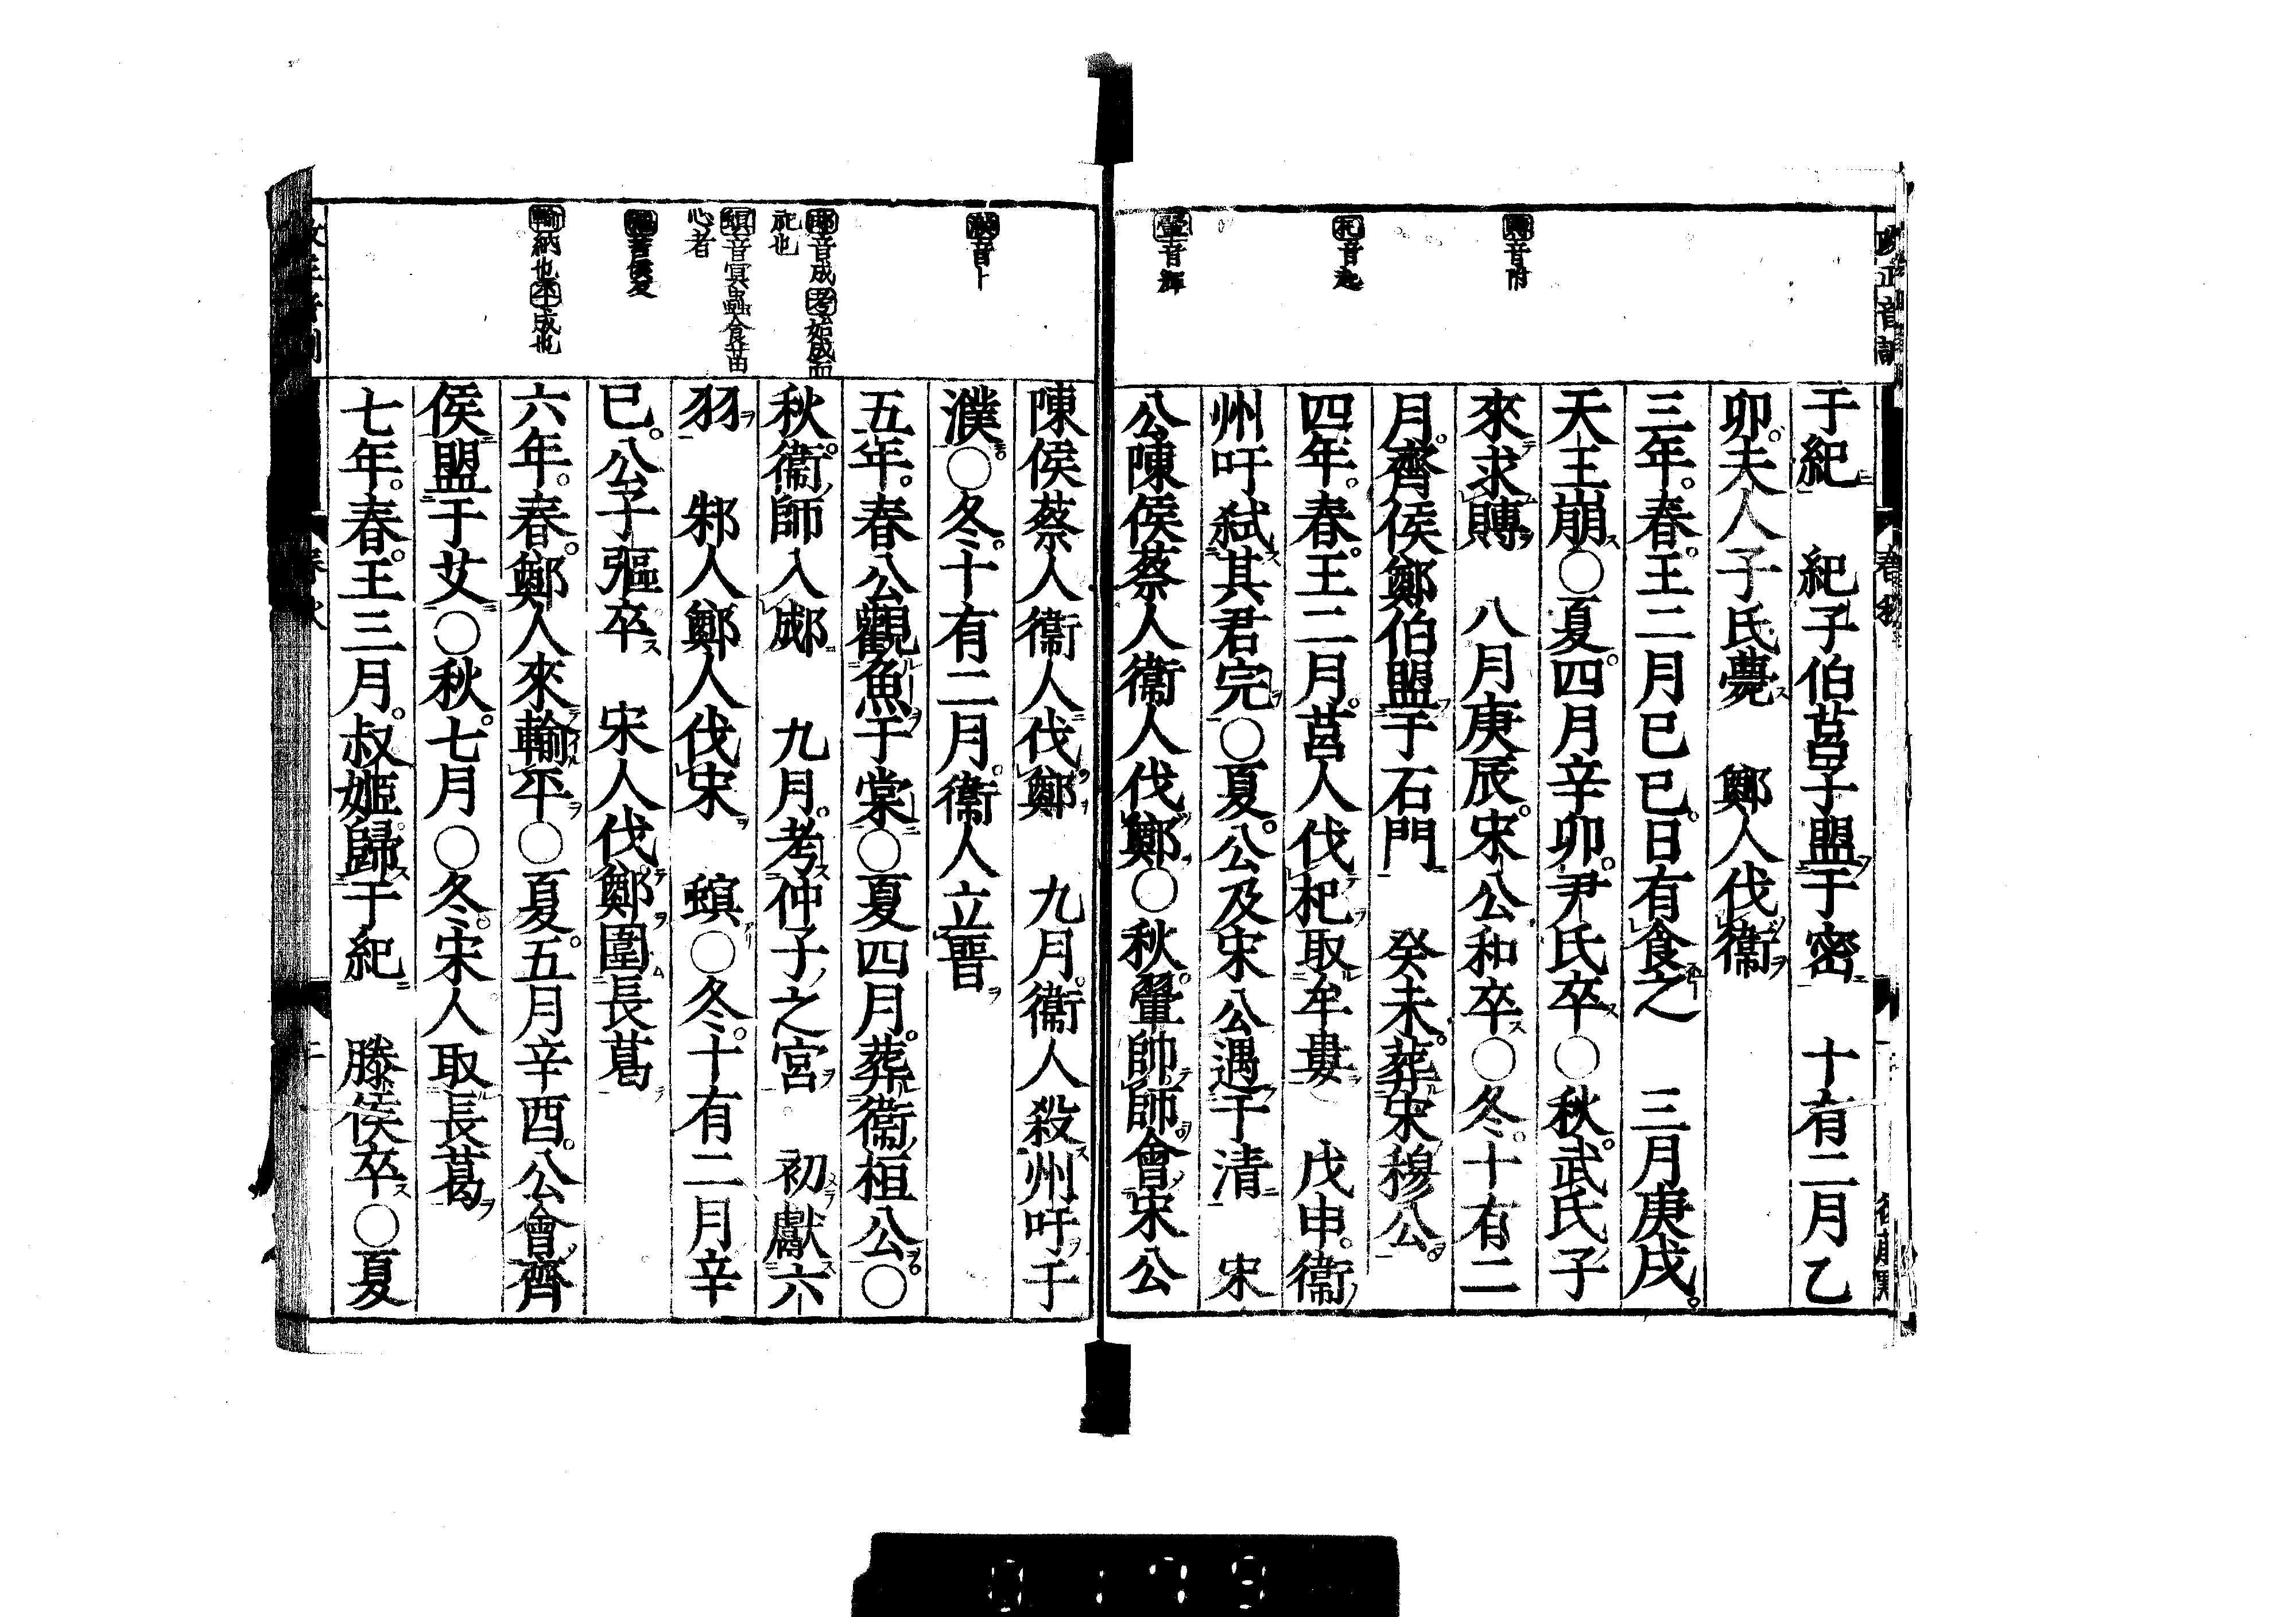 改正音訓
春秋
賻音附
杞音起
翬音輝
于紀　紀子伯莒子盟于密　十有二月乙
卯。夫人子氏薨　鄭人伐衞
三年。春。王二月已巳。日有食之　三月庚戌。
天王崩〇夏。四月辛卯。尹氏卒〇秋。武氏子
來求賻　八月庚辰。宋公和卒〇冬。十有二
月。齊侯鄭伯盟于石門　癸未。葬宋穆公
四年。春。王二月。莒人伐杞取牟婁　戊申。衞
州吁弑其君完〇夏。公及宋公遇于清　宋
公陳侯蔡人衞人伐鄭〇秋。翬帥師會宋公
濮音卜
郕音成考始成而
祀也
螟音冥蟲食苗
心者
輸納也平成也
陳侯蔡人衞人伐鄭　九月。衞人殺州吁于
濮〇冬。十有二月。衞人立晉
五年。春公觀魚于棠〇夏四月。葬衞桓公〇
秋。衞師入郕　九月。考仲子之宮　初獻六
羽　邾人鄭人伐宋　螟〇冬。十有二月辛
巳。公子彄卒　宋人伐鄭圍長葛
六年。春。鄭人來輸平〇夏。五月辛酉。公會齊
侯盟于艾〇秋。七月〇冬。宋人取長葛
七年。春。王三月。叔姬歸于紀　滕侯卒〇夏